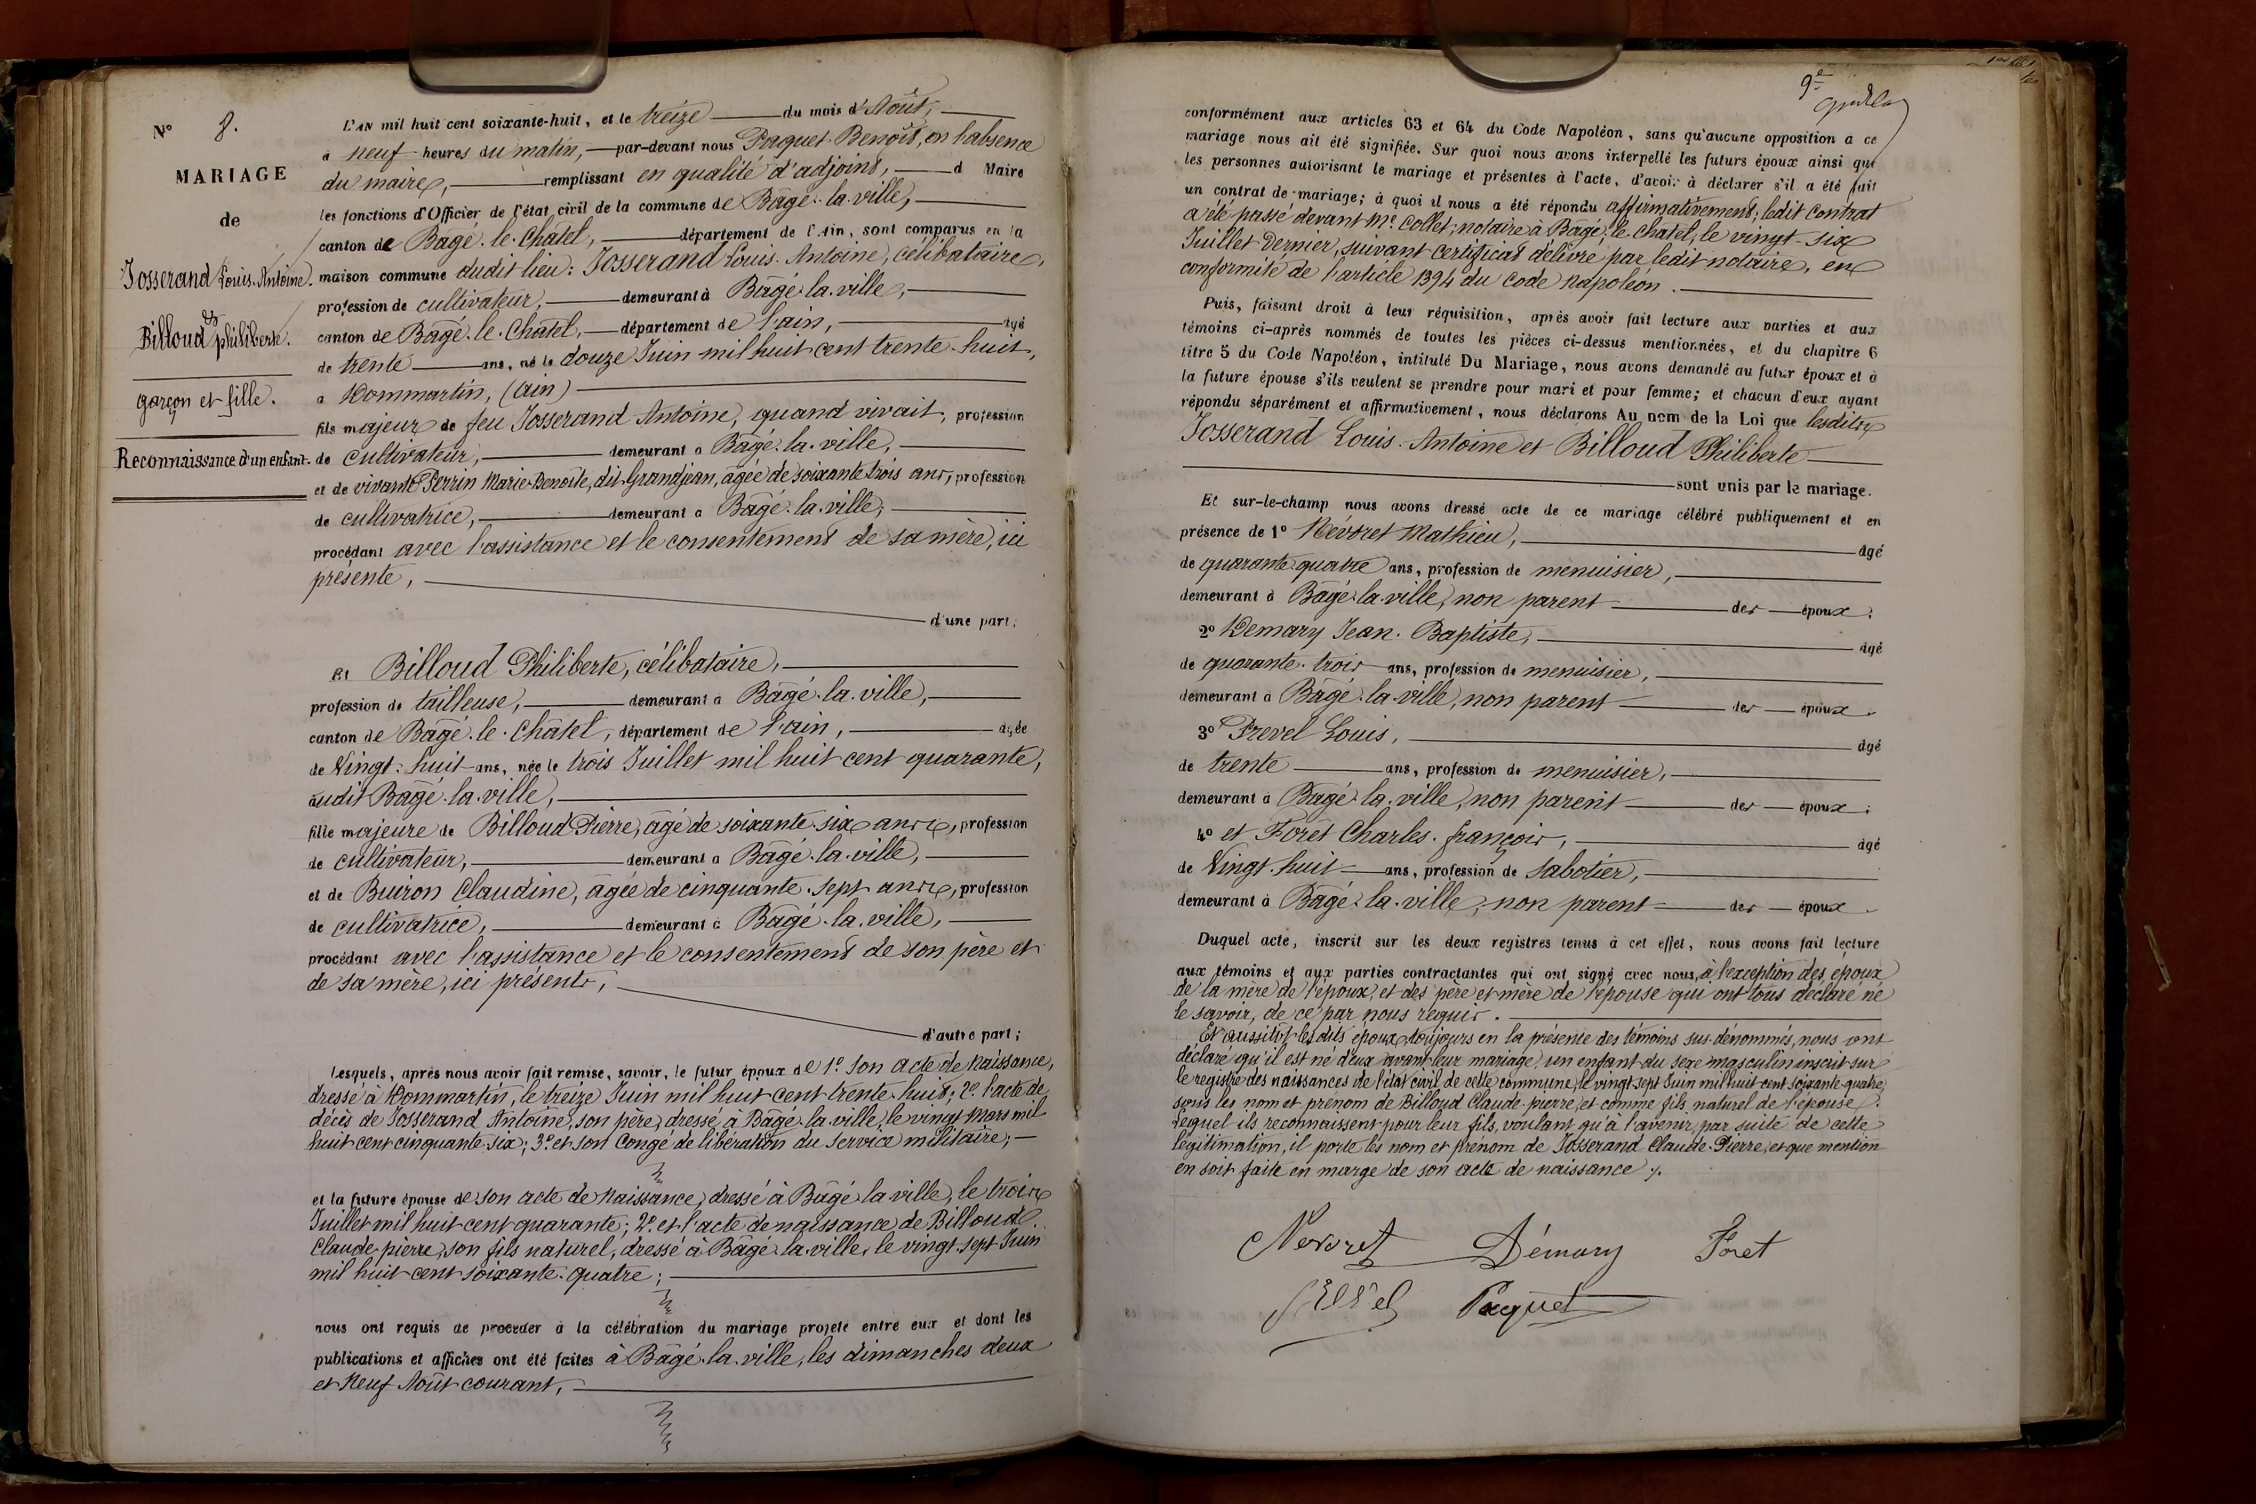 N° 8.
MARIAGE
de
Josserand Louis-Antoine.
et
Billoud philiberte.
garçon et fille.
Reconnaissance d'un enfant.
L'AN mil huit cent soixante-huit, et le treize du mois d'Août,
à neuf heures du matin, par-devant nous Paquet Benoît, en l'absence
du maire, remplissant en qualité d'adjoint, d Maire
les fonctions d'Officier de l'état civil de la commune de Bâgé-la-ville,
canton de Bagé-le-Châtel, département de l'Ain, sont comparus en la
maison commune dudit lieu: Josserand Louis-Antoine, célibataire,
profession de cultivateur, demeurant à Bâgé-la-ville,
canton de Bâgé-le-Châtel, département de l'ain, âgé
de trente ans, né le douze Juin mil huit cent trente-huit,
à Dommartin, (ain)
fils majeur de feu Josserand Antoine, quand vivait, profession
de cultivateur, demeurant à Bâgé-la-ville,
et de vivante Perrin Marie-Benoîte, dit Grandjean, âgée de soixante trois ans, profession
de cultivatrice, demeurant à Bâgé-la-ville,
procédant avec l'assistance et le consentement de sa mère, ici
présente,
d'une part;
Et Billoud Philiberte, célibataire,
profession de tailleuse, demeurant à Bâgé-la-ville,
canton de Bâgé-le-Châtel, département de l'ain, âgée
de Vingt-huit ans, née le trois Juillet mil huit cent quarante,
audit Bâgé-la-ville,
fille majeure de Billoud Pierre, âgé de soixante-six ans, profession
de cultivateur, demeurant à Bâgé-la-ville,
et de Buiron Claudine, âgée de cinquante-sept ans, profession
de cultivatrice, demeurant à Bâgé-la-ville,
procédant avec l'assistance et le consentement de son père et
de sa mère, ici présents,
d'autre part;
Lesquels, après nous avoir fait remise, savoir, le futur époux de 1° son acte de naissance,
dressé à Dommartin, le treize Juin mil huit cent trente-huit; 2° l'acte de
décès de Josserand Antoine, son père, dressé à Bâgé-la-ville, le vingt Mars mil
huit cent cinquante-six; 3° et son Congé de libération du service militaire;
et la future épouse de son acte de naissance, dressé à Bâgé-la-ville, le trois
Juillet mil huit cent quarante; 2° et l'acte de naissance de Billoud
Claude-pierre, son fils naturel, dressé à Bâgé-la-ville, le vingt-sept Juin
mil huit cent soixante-quatre;
nous ont requis de procéder à la célébration du mariage projeté entre eux et dont les
publications et affiches ont été faites à Bâgé-la-ville, les dimanches deux
et Neuf Août courant,
9e
conformément aux articles 63 et 64 du Code Napoléon, sans qu'aucune opposition a ce
mariage nous ait été signifiée. Sur quoi nous avons interpellé les futurs époux ainsi que
les personnes autorisant le mariage et présentes à l'acte, d'avoir à déclarer s'il a été fait
un contrat de mariage; à quoi il nous a été répondu affirmativement; ledit Contrat
a été passé devant Me. Collet, notaire à Bâgé-le-chatel, le vingt-six
Juillet Dernier, suivant certificat délivré par ledit notaire, en
conformité de l'article 1394 du Code Napoléon.
Puis, faisant droit à leur réquisition, après avoir fait lecture aux parties et aux
témoins ci-après nommés de toutes les pièces ci-dessus mentionnées, et du chapitre 6
titre 5 du Code Napoléon, intitulé Du Mariage, nous avons demandé au futur époux et à
la future épouse s'ils veulent se prendre pour mari et pour femme; et chacun d'eux ayant
répondu séparément et affirmativement, nous déclarons Au nom de la Loi que lesdits
Josserand Louis-Antoine et Billoud Philiberte
sont unis par le mariage.
Et sur-le-champ nous avons dressé acte de ce mariage célébré publiquement et en
présence de 1° Névoret Mathieu, âgé
de quarante-quatre ans, profession de menuisier,
demeurant à Bâgé-la-ville, non parent des époux;
2° Démary Jean-Baptiste, âgé
de quarante-trois ans, profession de menuisier,
demeurant à Bâgé-la-ville, non parent des époux.
3° Prevel Louis, âgé
de trente ans, profession de menuisier,
demeurant à Bâgé-la-ville, non parent des époux;
4° et Forêt Charles-françois, âgé
de Vingt-huit ans, profession de sabotier,
demeurant à Bâgé-la-ville, non parent des époux.
Duquel acte, inscrit sur les deux registres tenus à cet effet, nous avons fait lecture
aux témoins et aux parties contractantes qui ont signé avec nous, à l'exception des époux
de la mère de l'époux, et des père et mère de l'épouse qui ont tous déclaré ne
le savoir, de ce par nous requis.
Et aussitôt lesdits époux, toujours en la présence des témoins sus-dénommés, nous ont
déclaré qu'il est né d'eux avant leur mariage, un enfant du sexe masculin inscrit sur
le registre des naissances de l'état civil de cette commune, le vingt-sept Juin mil huit cent soixante-quatre,
sous les nom et prénom de Billoud Claude-pierre, et comme fils naturel de l'épouse.
Lequel ils reconnaissent pour leur fils, voulant qu'à l'avenir, par suite de cette
légitimation, il porte les nom et prénom de Josserand Claude-Pierre, et que mention
en soit faite en marge de son acte de naissance ./.
Nevoret Démary Foret
Paquet